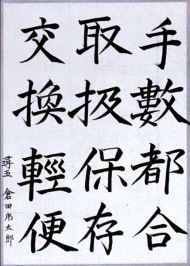 手數都合
取扱保存
交換輕便
尋五 倉田席太郎